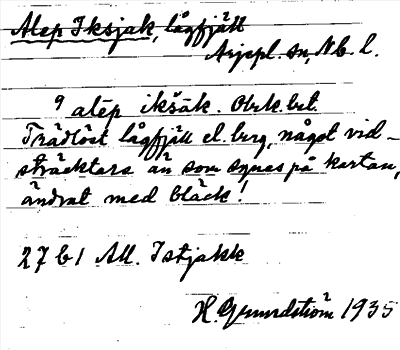 Alep Iksjak, lågfjäll
Arjepl. sn, Nb. l.
alēp ikšāk. Obek. bet.
Trädlöst lågfjäll el. berg, något vid-
sträcktare än som synes på kartan,
ändrat med bläck!
27 b 1 All. Istjakk
H. Grundström 1935